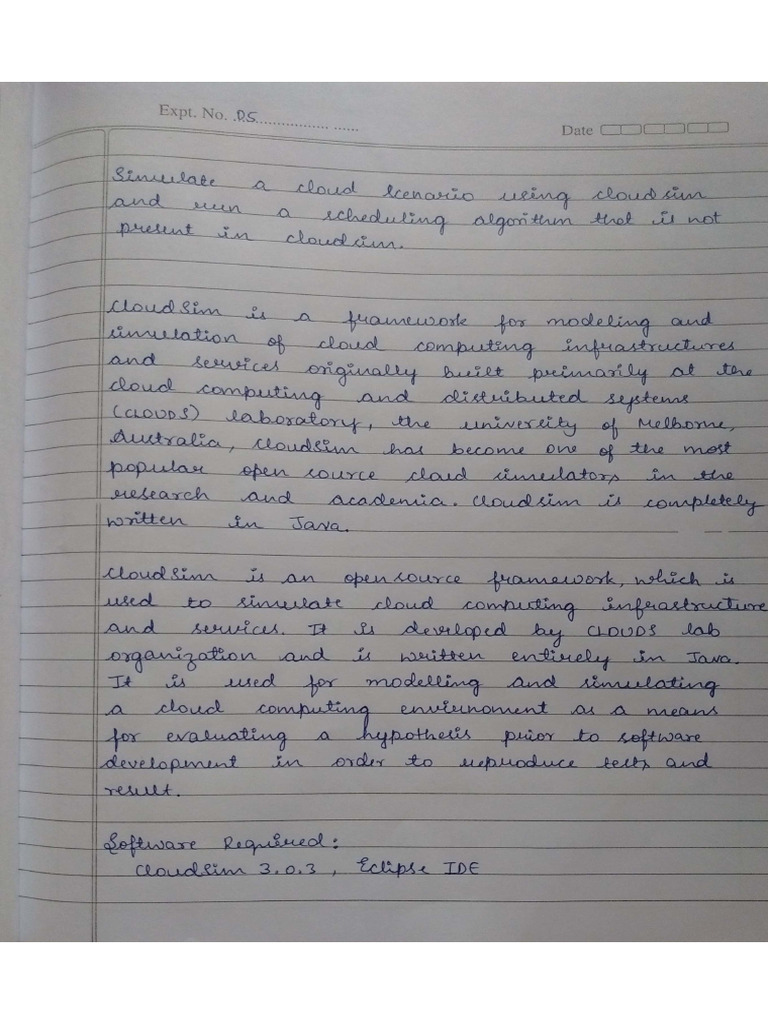 Expt. No. 05
Date
Simulate a cloud scenario using cloudsim
and run a scheduling algorithm that is not
present in cloudsim.
CloudSim is a framework for modeling and
simulation of cloud computing infrastructures
and services originally built primarily at the
cloud computing and distributed systems
(CLOUDS) laboratory, the university of Melborne,
Australia, CloudSim has become one of the most
popular open source cloud simulators in the
research and academia. Cloudsim is completely
written in Java.
CloudSim is an open source framework, which is
used to simulate cloud computing infrastructure
and services. It is developed by CLOUDS lab
organization and is written entirely in Java.
It is used for modelling and simulating
a cloud computing envirnoment as a means
for evaluating a hypothesis prior to software
development in order to reproduce tests and
result.
Software Required:
CloudSim 3.0.3, Eclipse IDE